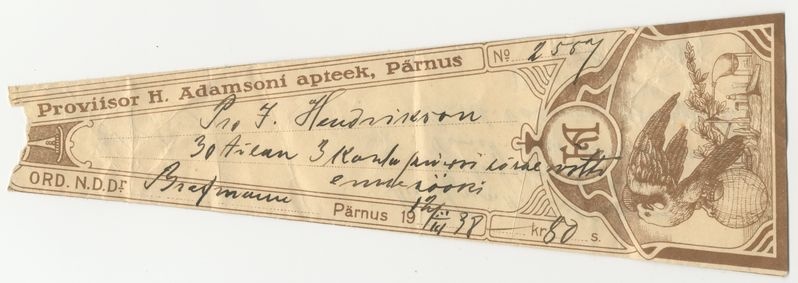 Proviisor H. Adamsoni apteek, Pärnus
No 2557
Pro J. Hendrikson
30 tilan 3 korda päevas
enne sööki
ORD. N.D.Dr Brehmann
Pärnus 19 12/III 38
kr. 80 s.
HA